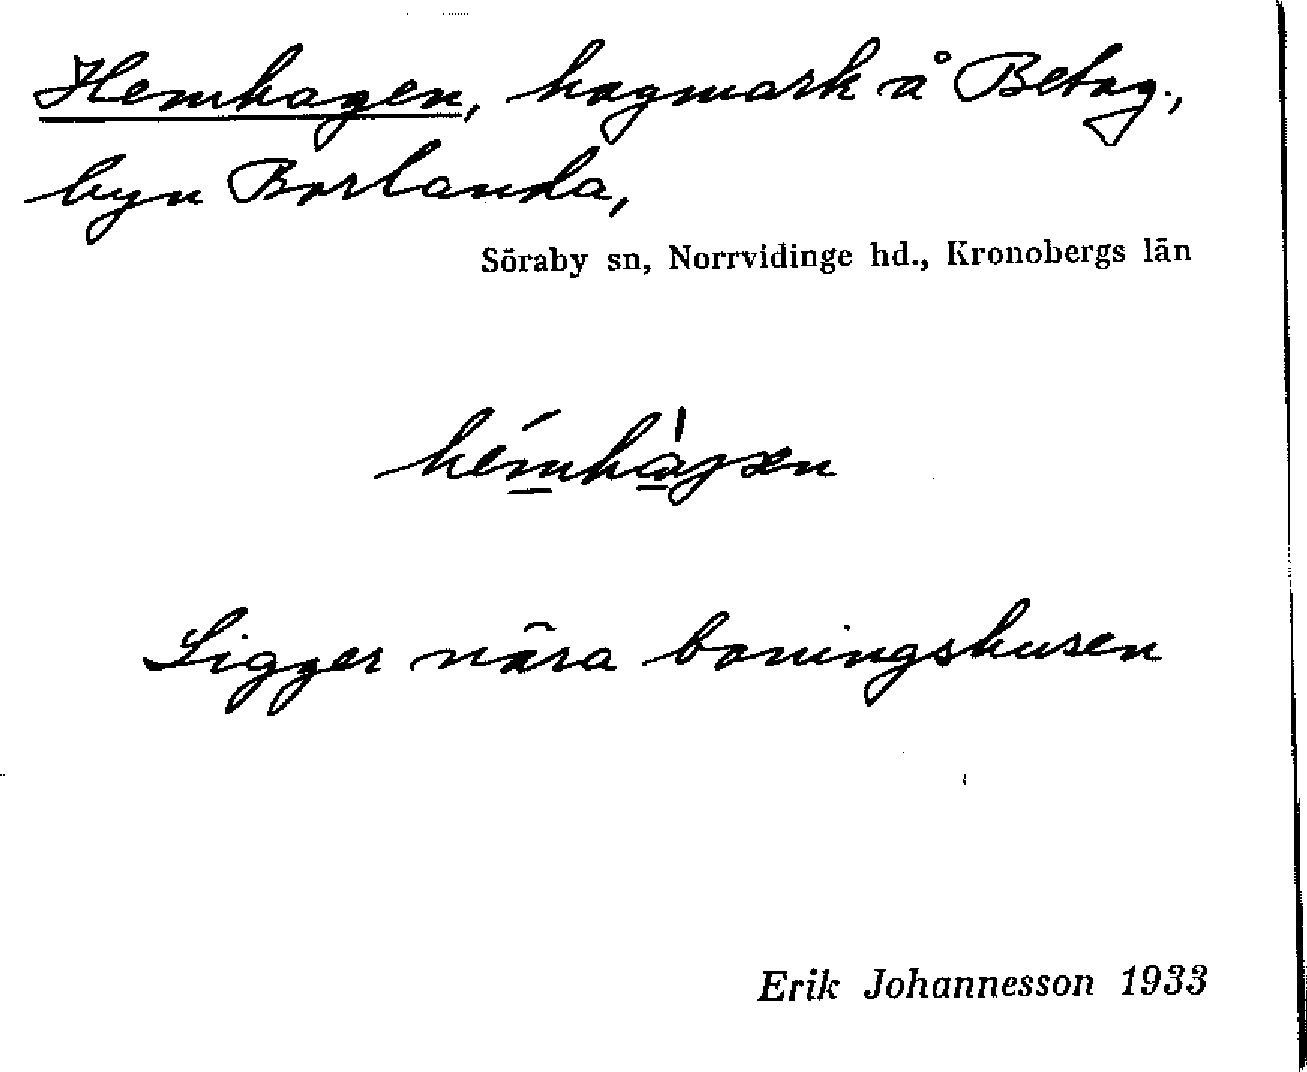 Hemhagen, hagmark å Betag.,
byn Borlanda,
Söraby sn, Norrvidinge hd., Kronobergs län
Ligger nära boningshusen
Erik Johannesson 1933